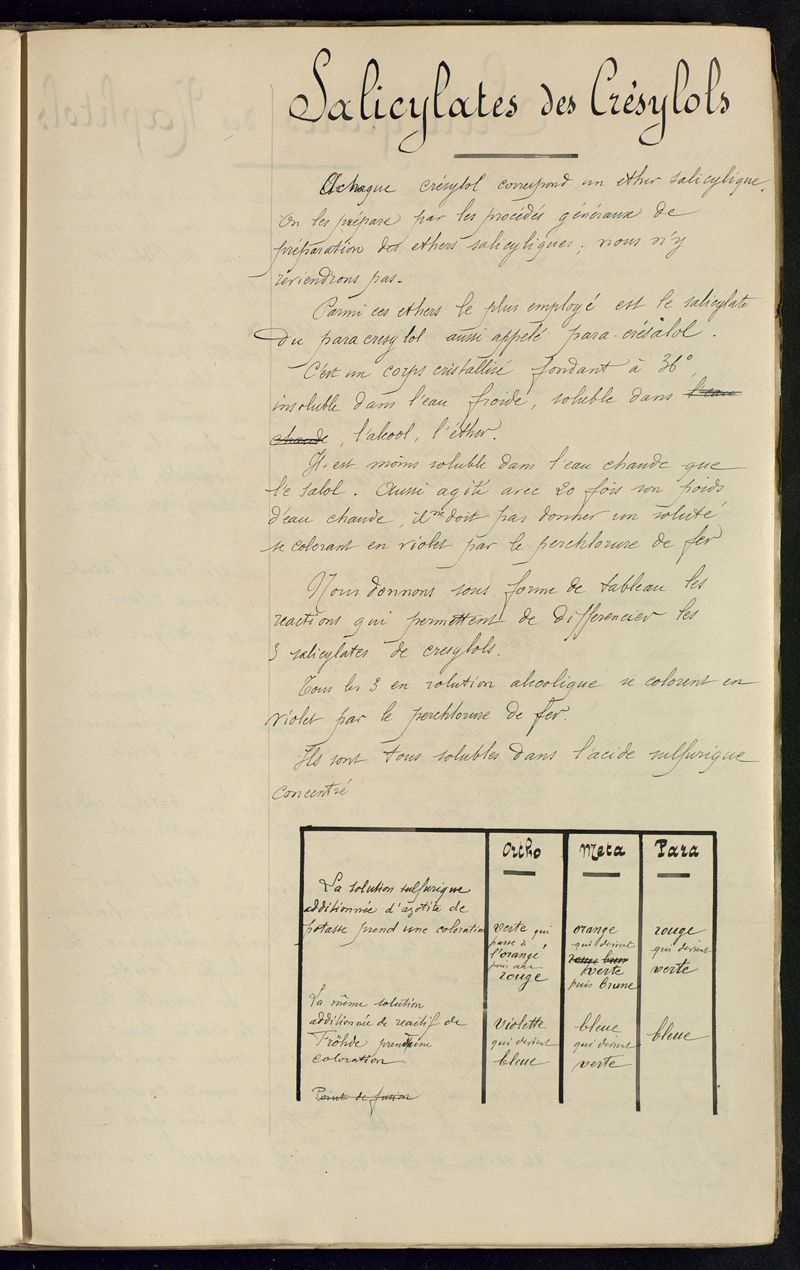 Salicylates des Crésylols
A chaque crésylol correspond un ether salicylique.
On les prépare par les procédés généraux de
préparation des ethers salicyliques; nous n'y
reviendrons pas.
Parmi ces ethers le plus employé est le salicylate
du paracresylol aussi appelé para-crésalol.
C'est un corps cristallisé fondant à 36°,
insoluble dans l'eau froide, soluble dans l'eau
chaude, l'alcool, l'éther.
Il est moins soluble dans l'eau chaude que
le salol. Aussi agité avec 20 fois son poids
d'eau chaude, il ne doit pas donner un soluté
se colorant en violet par le perchlorure de fer
Nous donnons sous forme de tableau les
reactions qui permettent de differencier les
3 salicylates de cresylols.
Tous les 3 en solution alcoolique se colorent en
violet par le perchlorure de fer.
Ils sont tous solubles dans l'acide sulfurique
concentré
Ortho Meta Para
La solution sulfurique
additionnée d'azotite de
potasse prend une coloration
verte qui
passe à
l'orangé
puis au
rouge
orange
qui devient
rouge brun
verte
puis brune
rouge
qui devient
verte
La même solution
additionnée de reactif de
Fröhde prend une
coloration
violette
qui devient
bleue
bleue
qui devient
verte
bleue
Point de fusion